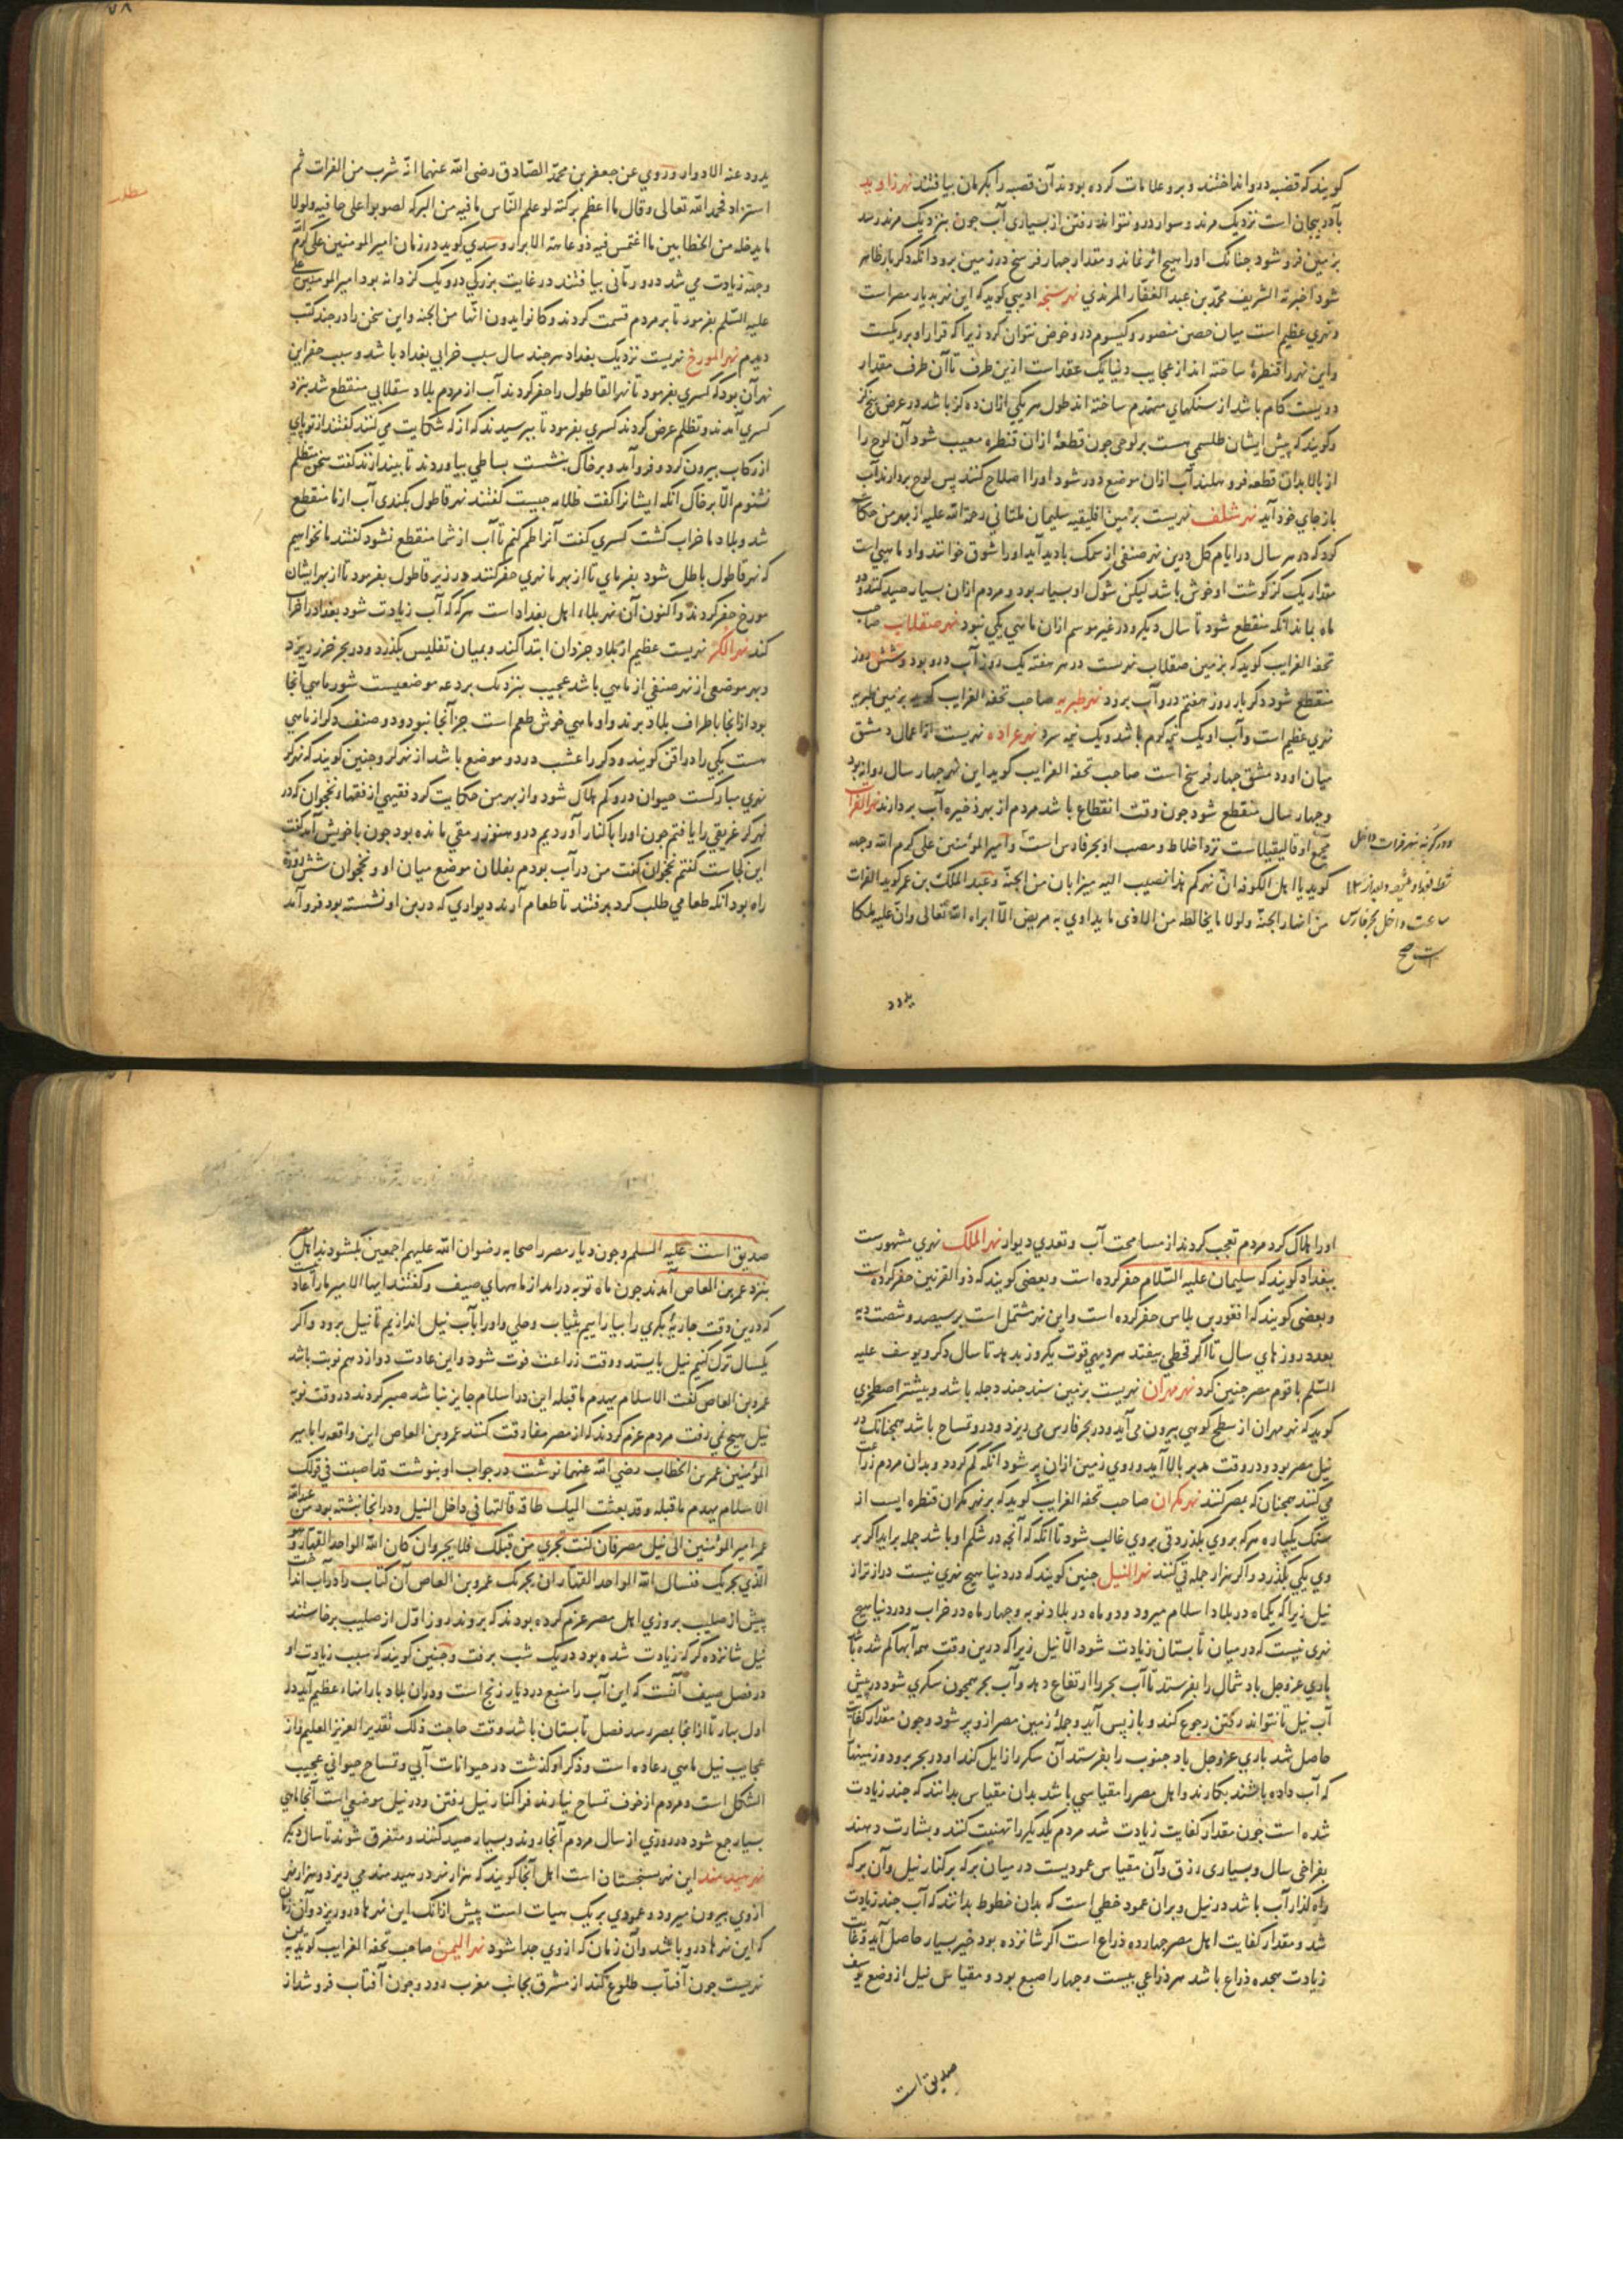 کویند که قضبه در و انداختند و برو علامات کرده بودند آن قصبه را بکرمان یافتند نهر زاوید
بآذربیجان است نزدیک مرند و سوار درو نتواند رفتن از بسیاری آب چون بنزدیک مرند رسد
بزمین فرو شود چنانک اورا هیچ اثر نماند و مقدار چهار فرسخ در زمین برود آنکه دکر بار ظاهر
شود اخبر به الشریف محمد بن عبد الغفار المرندی نهر سنجه ادیبی کوید که این نهر بدیار مصر است
و نهری عظیم است میان حصن منصور و کیسوم درو خوض نتوان کرد زیرا که قرار او بر ریکست
و این نهر را قنطرهٔ ساخته اند از عجایب دنیا یک عقد است ازین طرف تا آن طرف مقدار
دویست کام باشد از سنکهای مهندم ساخته اند طول هر یکی ازان ده کز باشد در عرض پنج کز
و کویند که پیش ایشان طلسمی هست بر لوحی چون قطعهٔ ازان قنطره معیب شود آن لوح را
از بالا بدان قطعه فرو هلند آب ازان موضع دور شود اورا اصلاح کنند پس لوح بردارند آب
باز جای خود آید نهر شلف نهریست بزمین افلیقیه سلیمان ملتانی رحمة الله علیه از بهر من حکایت
کرد که در هر سال در ایام کل درین نهر صنفی از سمک بادید آید اورا شوق خوانند و او ماهیی است
مقدار یک کز کوشت او خوش باشد لیکن شوک او بسیار بود و مردم ازان بسیار صید کنند و دو
ماه بماند آنکه منقطع شود تا سال دیکر و در غیر موسم ازان ماهی یکی نبود نهر صقلاب صاحب
تحفه الغرایب کوید که بزمین صقلاب نهریست در هر هفته یک روز آب درو بود و شش روز
منقطع شود دکر بار روز هفتم درو آب برود نهر طبریه صاحب تحفه الغرایب کوید بزمین طبریه
نهری عظیم است و آب او یک نیمه کرم باشد و یک نیمه سرد نهر عراده نهریست از اعمال دمشق
میان او و دمشق چهار فرسخ است صاحب تحفه الغرایب کوید این نهر چهار سال روان بود
و چهار سال منقطع شود چون وقت انقطاع باشد مردم از بهر ذخیره آب بردارند نهر الفرات
او قالیقیلاست نزد اخلاط و مصب او بحر فارس است و امیر المؤمنین علی کرم الله وجهه
کوید یا اهل الکوفه ان نهرکم هذا نصیب الیه میزابان من الجنة و عبد الملک بن عمر کوید الفرات
من انهار الجنة و لولا ما یخالطه من الاذی ما یداوی به مریض الا ابراه الله تعالی و ان علیه ملکا
یذود
یذود عنه الادواء و روی عن جعفر بن محمد الصادق رضی الله عنهما انه شرب من الفرات ثم
استزاد فحمد الله تعالی و قال ما اعظم برکته لو علم الناس ما فیه من البرکه لضربوا علی حافیه و لولا
ما یدخله من الخطایین ما اغتمس فیه ذو عاهة الا برا و سدی کوید در زمان امیر المومنین علی کرم
وجهه زیادت می شد درو رمانی یافتند در غایت بزرکی درو یک کر دانه بود امیر المومنین علی
علیه السلم بفرمود تا بر مردم قسمت کردند و کانوا یرون انها من الجنه و این سخن را در چند کتب
دیدم نهر المورخ نهریست نزدیک بغداد هر چند سال سبب خرابی بغداد باشد و سبب حفر این
نهر آن بود که کسری بفرمود تا نهر القاطول را حفر کردند آب از مردم بلاد سفلایی منقطع شد بنزد
کسری آمدند و تظلم عرض کردند کسری بفرمود تا بپرسیدند که از که شکایت می کنند کفتند از تو پای
از رکاب بیرون کرد و فرو آمد و بر خاک بنشست بساطی بیاوردند تا بیندازند کفت سخن متظلم
نشنوم الا بر خاک آنکه ایشانرا کفت ظلامه چیست کفتند نهر قاطول بکندی آب از ما منقطع
شد و بلاد ما خراب کشت کسری کفت آنرا طم کنم تا آب از شما منقطع نشود کفتند ما نخواهیم
که نهر قاطول باطل شود بفرمای تا از بهر ما نهری حفر کنند در زیر قاطول بفرمود تا از بهر ایشان
مورخ حفر کردند و اکنون آن نهر بلاء اهل بغداد است هر که که آب زیادت شود بغداد را خراب
کند نهر الکر نهریست عظیم از بلاد جزوان ابتدا کند و بمیان تفلیس بکذرد و در بحر خزر دیزد
و بهر موضعی از نهر صنفی از ماهی باشد عجیب بنزدیک بردعه موضعیست شورماهی آنجا
بود از انجا باطراف بلاد برند و او ماهی خوش طعم است جز آنجا نبود و دو صنف دکر از ماهی
هست یکی را دراقن کویند و دکر را عشب در دو موضع باشد از نهر کر و چنین کویند که نهر کر
نهری مبارکست حیوان درو کم هلاک شود و از بهر من حکایت کرد فقیهی از فقهاء نخجوان که در
نهر کر غریقی را یافتم چون اورا با کنار آوردیم درو هنوز رمقی مانده بود چون با خویش آمد کفت
این کجاست کفتم نخجوان کفت من در آب بودم بفلان موضع میان او و نخجوان شش روزه
راه بود آنکه طعامی طلب کرد برفتند تا طعام آرند دیواری که در بن او نشسته بود فرو آمد
اورا هلاک کرد مردم تعجب کردند از مسامحت آب و تعدی دیوار نهر الملک نهری مشهورست
ببغداد کویند که سلیمان علیه السلام حفر کرده است و بعضی کویند که ذو القرنین حفر کرده است
و بعضی کویند که افقورین بلاس حفر کرده است و این نهر مشتمل است بر سیصد و شصت دیه
بعدد روزهای سال تا اکر قحطی بیفتد هر دیهی قوت یکروز بدهد تا سال دکر و یوسف علیه
السلم با قوم مصر چنین کرد نهر مهران نهریست بزمین سند چند دجله باشد و بیشتر اصطخری
کوید که نهر مهران از سطح کوهی بیرون می آید و در بحر فارس می ریزد و درو تمساح باشد همچنانک در
نیل مصر بود و در وقت مد بر بالا آید و روی زمین ازان پر شود آنکه کم کردد و بدان مردم زراعت
می کنند همچنان که بمصر کنند نهر مکران صاحب تحفه الغرایب کوید که بر نهر مکران قنطره ایست از
سنک یکپاره هر که بر وی بکذرد قی بر وی غالب شود تا آنکه که آنچه در شکم او باشد جمله بر آید اکر بر
وی یکی بکذرد و اکر هزار جمله قی کنند نهر النیل چنین کویند که در دنیا هیچ نهری نیست درازتر از
نیل زیرا که یکماه در بلاد اسلام میرود و دو ماه در بلاد نوبه و چهار ماه در خراب و در دنیا هیچ
نهری نیست که در میان تابستان زیادت شود الا نیل زیرا که درین وقت همه آبها کم شده باشد
باری عز و جل باد شمال را بفرستد تا آب بحر را ارتفاع دهد و آب بحر همچون سکری شود در پیش
آب نیل تا نتواند رفتن رجوع کند و باز پس آید و جملهٔ زمین مصر ازو پر شود و چون مقدار کفایت
حاصل شد باری عز و جل باد جنوب را بفرستد آن سکر را زایل کند او در بحر برود و زمینها
که آب داده باشند بکارند و اهل مصر را مقیاسی باشد بدان مقیاس بدانند که چند زیادت
شده است چون مقدار کفایت زیادت شد مردم یکدیکر را تهنیت کنند و بشارت دهند
بفراخی سال و بسیاری رزق و آن مقیاس عمودیست در میان برکه بر کنار نیل و آن برکه
راه کذار آب باشد در نیل و بران عمود خطی است که بدان خطوط بدانند که آب چند زیادت
شد و مقدار کفایت اهل مصر چهارده ذراع است اکر شانزده بود خیر بسیار حاصل آید و غایت
زیادت هجده ذراع باشد هر ذراعی بیست و چهار اصبع بود و مقیاس نیل از وضع یوسف
صدیق است
صدیق است علیه السلم و چون دیار مصر را صحابه رضوان الله علیهم اجمعین بکشودند اهل
بنزد عمرو بن العاص آمدند چون ماه توبه درامد از ماههای صیف و کفتند ایها الامیر ما را عادت
که درین وقت جاریهٔ بکری را بیاراییم بثیاب و حلی و اورا بآب نیل اندازیم تا نیل برود و اکر
یکسال ترک کنیم نیل بایستد و وقت زراعت فوت شود و این عادت دوازدهم نوبت باشد
عمرو بن العاص کفت الاسلام یهدم ما قبله این در اسلام جایز نباشد صبر کردند در وقت توبه
نیل هیچ نمی رفت مردم عزم کردند که از مصر مفارقت کنند عمرو بن العاص این واقعه را بامیر
المؤمنین عمر بن الخطاب رضی الله عنهما نوشت در جواب او بنوشت قد اصبت فی قولک
الاسلام یهدم ما قبله و قد بعثت الیک طاقه فالقها فی داخل النیل و درانجا نبشته بود من عبد الله
عمر امیر المؤمنین الی نیل مصر فان کنت تجری من قبلک فلا یجر و ان کان الله الواحد القهار هو
الذی یجریک فنسال الله الواحد القهار ان یجریک عمرو بن العاص آن کتاب را در آب انداخت
پیش از صلیب بروزی اهل مصر عزم کرده بودند که بروند روز اول از صلیب برخاستند
نیل شانزده کز که زیادت شده بود در یک شب برفت و چنین کویند که سبب زیادت او
در فصل صیف آنست که این آب را منبع در دیار زنج است و دران بلاد بارانهاء عظیم آید در
اول بهار تا از انجا بمصر رسد فصل تابستان باشد وقت حاجت ذلک تقدیر العزیز العلیم و از
عجایب نیل ماهی رعاده است و ذکر او کذشت در حیوانات آبی و تمساح حیوانی عجیب
الشکل است و مردم از خوف تمساح نیارند فرا کنار نیل رفتن و در نیل موضعی است آنجا ماهی
بسیار جمع شود در روزی از سال مردم آنجا روند و بسیار صید کنند و متفرق شوند تا سال دیکر
نهر هیدمند این نهر بسجستان است اهل آنجا کویند که هزار نهر در هیدمند می ریزد و هزار نهر
از وی بیرون میرود و عمودی بر یک هیات است پیش ازانک این نهرها درو ریزد و آن زمان
که این نهرها درو باشد و آن زمان که از وی جدا شود نهر الیمن صاحب تحفه الغرایب کوید بیمن
نهریست چون آفتاب طلوع کند از مشرق بجانب مغرب رود و چون آفتاب فرو شد از